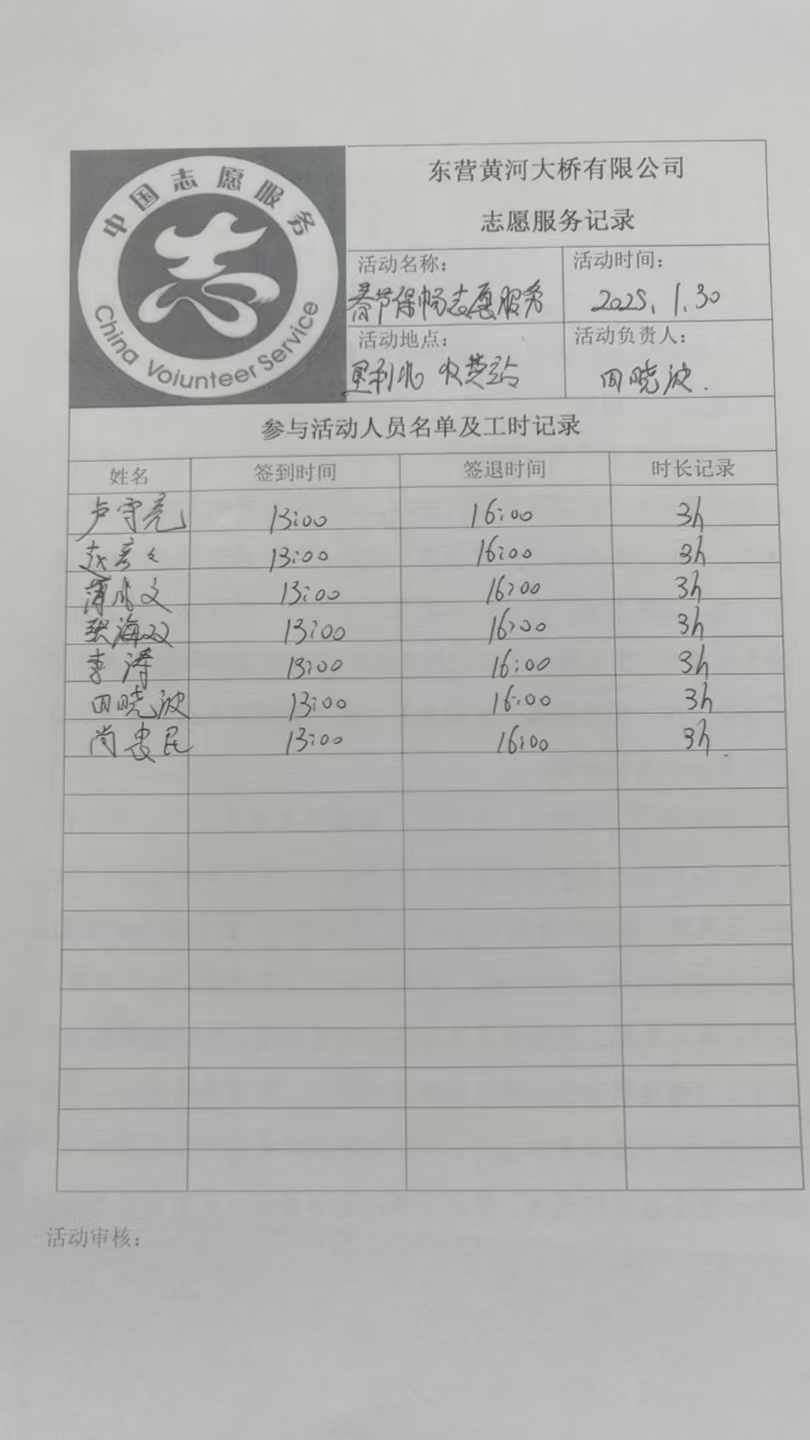 中国志愿服务
志
China Voiunteer Service
东营黄河大桥有限公司
志愿服务记录
活动名称：
活动时间：
春节保畅志愿服务
2025.1.30
活动地点：
活动负责人：
垦利北 收费站
田晓波.
参与活动人员名单及工时记录
姓名 签到时间 签退时间 时长记录
卢守亮 13:00 16:00 3h
赵 13:00 16:00 3h
薄 文 13:00 16:00 3h
张海双 13:00 16:00 3h
李涛 13:00 16:00 3h
田晓波 13:00 16:00 3h
尚 民 13:00 16:00 3h
活动审核：